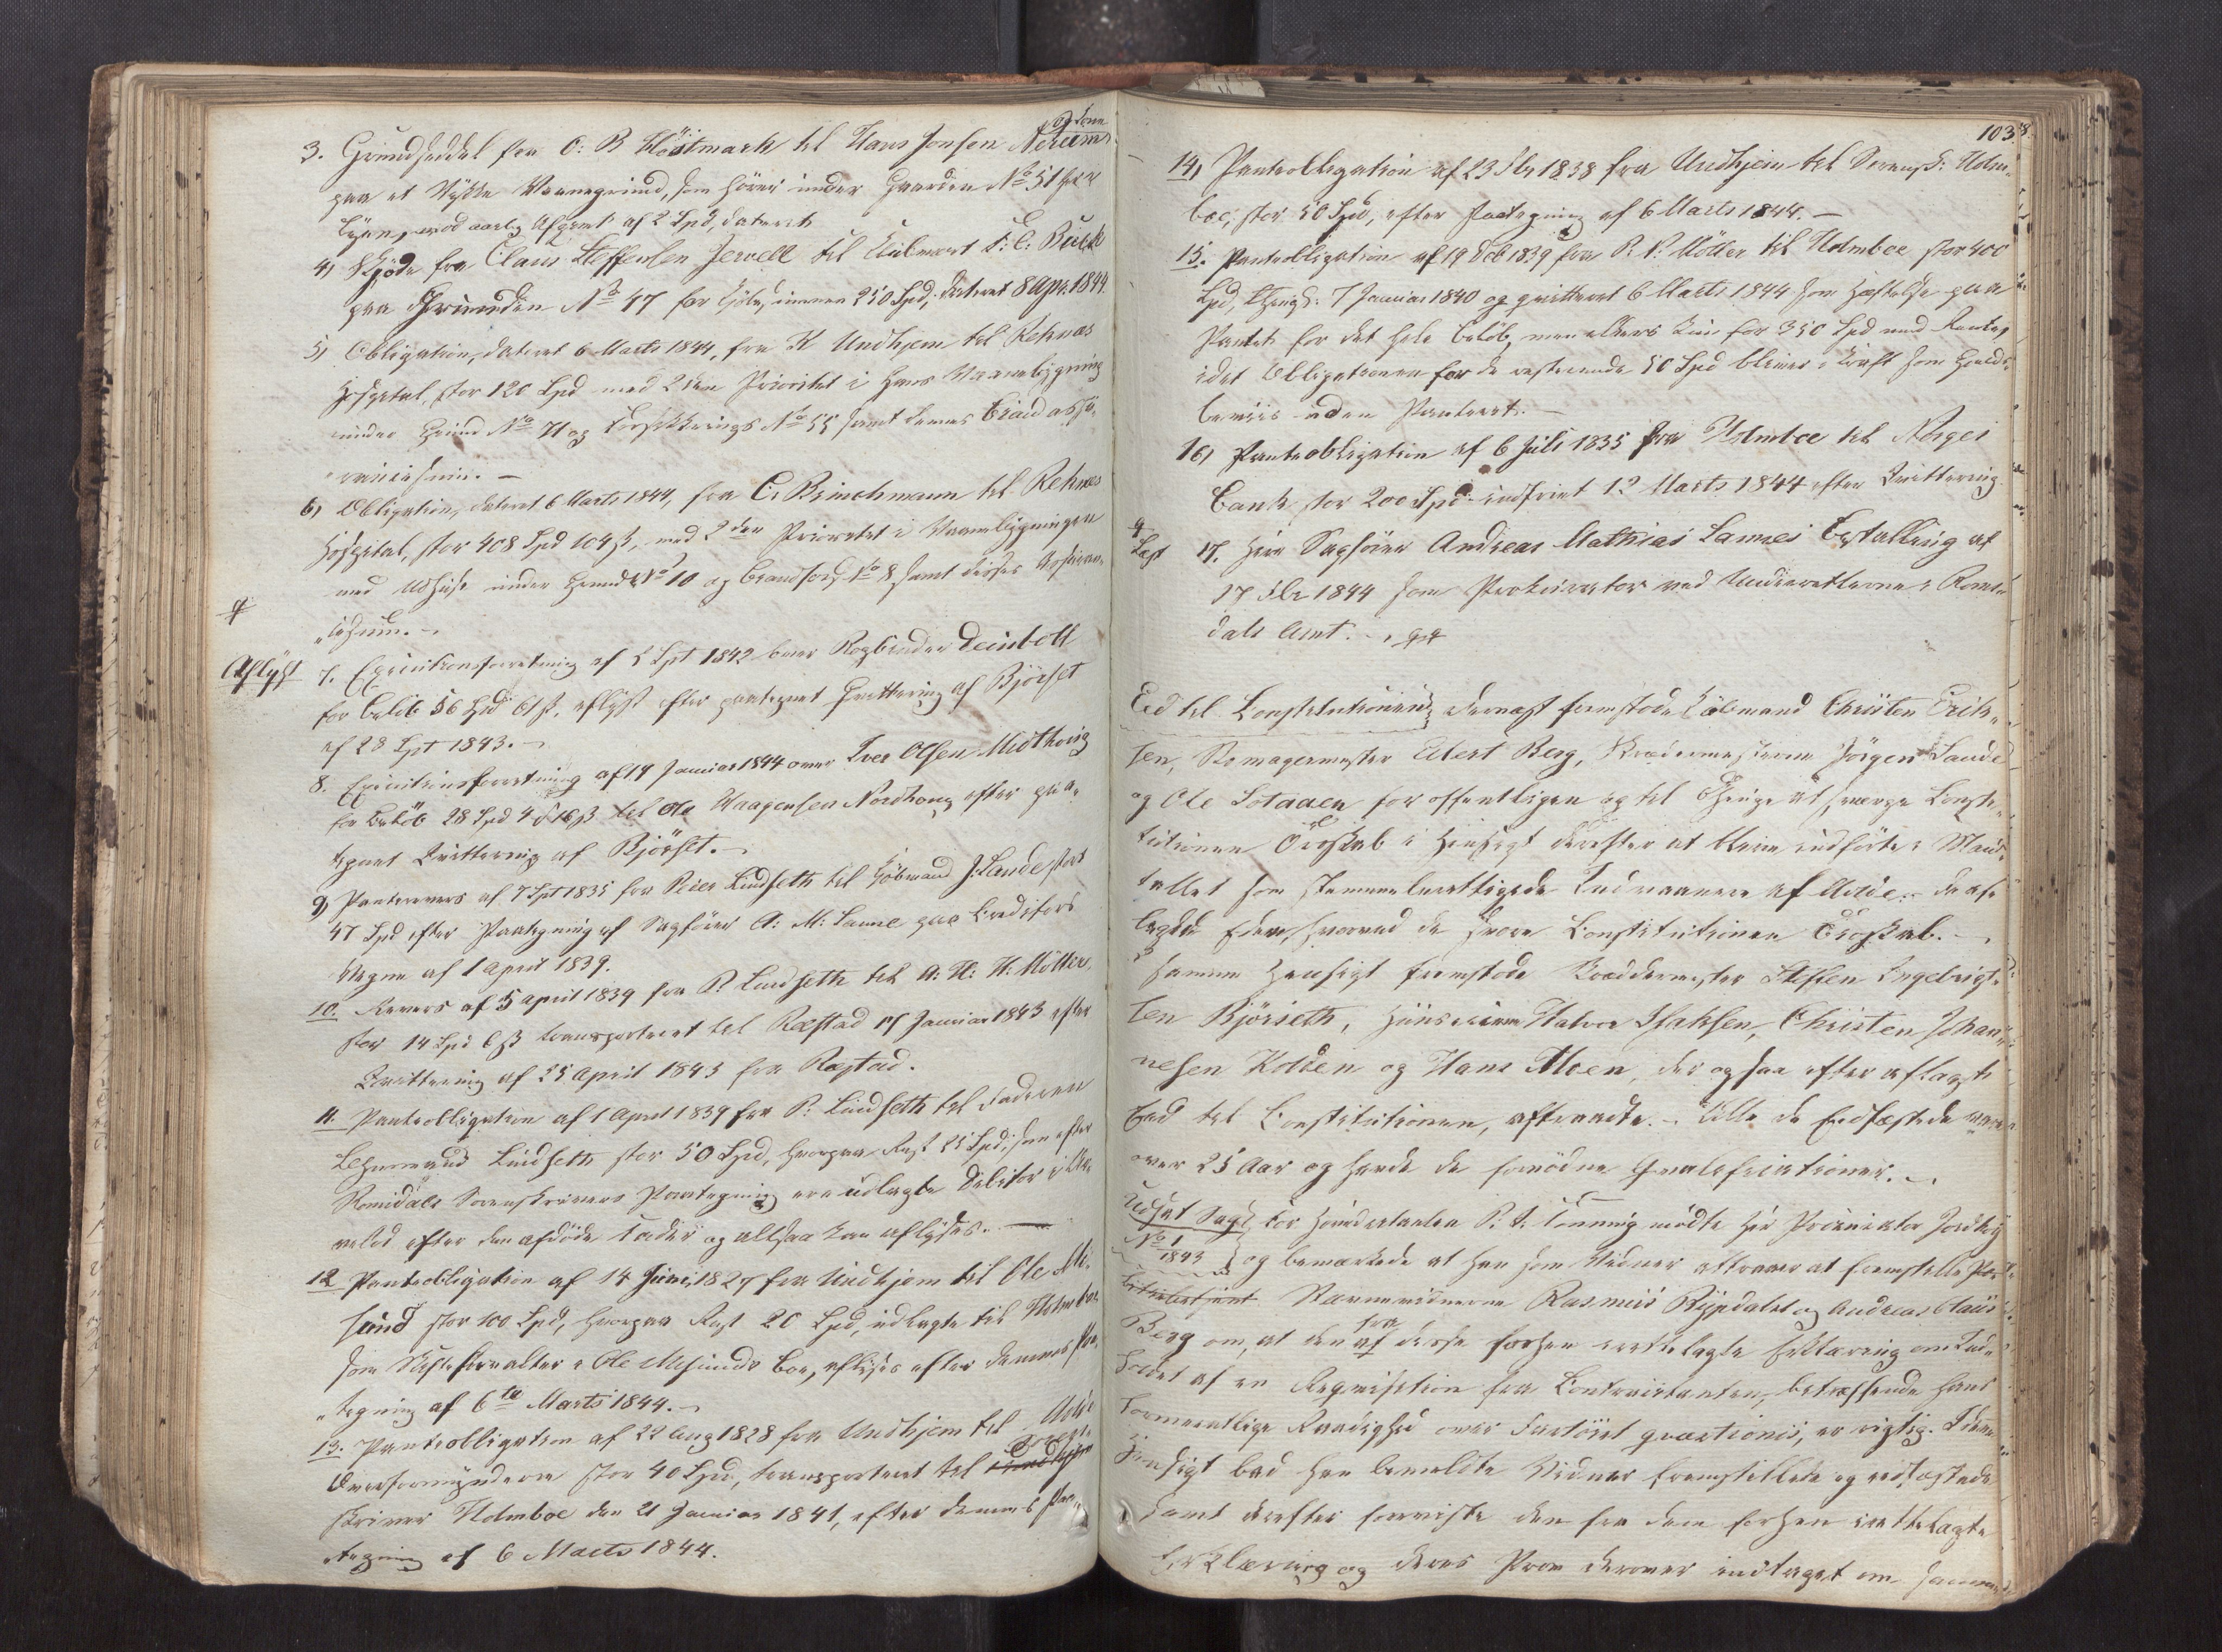 og Kone
3. Grundseddel fra O: B Höstmark til Hans Jonsen Nerem
paa et Stykke Vaanegrund, som hörer under Gaarden No 51 her i
Byen, mod aarlig Afgivt af 2 Spd, dateret
4, Skjöde fra Claus Steffensen Jervell til Kiöbmand F: C: Buck
paa Grunden No 47 for Kjöbesummen 250 Spd, dateret 8 Apr. 1844.
5, Obligation, dateret 6 Marts 1844, fra K Undhjem til Reknæs
Hospital, stor 120 Spd med 2den Prioritet i hans Vaanebygning
under Grund No 71 og Forsikkrings No 55 samt dennes Brandassu-
rancesum. —
6, Obligation, dateret 6 Marts 1844, fra C. Brinchmann til Reknes
Hospital, stor 408 Spd 104 ß, med 2den Prioritet i Vaanebygningen
med Udhuse under Grund No 10 og Brandfors. No 8, samt disses Assuran-
cesum. —
Aflyst 7. Executionsforretning af 5 Spt 1842 over Deinboll
for Belöb 56 Spd 61 ß, aflyst efter paategnet Qvittering af Björset
af 28 Spt 1843. —
8. Executionsforretning af 19 Januar 1844 over Iver Olsen Midthoug
for Belöb 28 Spd 4 # 16 ß til Ole Waagensen Nordhoug efter paa-
tegnet Qvittering af Björset. —
9, Panterevers af 7 Spt 1835 fra Peder Lindseth til Kjöbmand J. Lande stor
47 Spd efter Paategning af Sagförer A: M: Janne paa Creditors
Vegne af 1 April 1839.
10. Revers af 5 April 1839 fra P. Lindseth til A: H: H: Möller,
stor 14 Spd 6 ß transporteret til Ræstad Januar 1843 efter
Qvittering af 25 April 1843 fra Ræstad.
11. Panteobligation af 1 April 1839 fra P: Lindseth til Faderen
Lehnsmand Lindseth stor 50 Spd, hvorpaa Rest 25 Spd, som efter
Romsdals Sorenskrivers Paategning ere udlagte Debitor i
efter den afdöde Fader og altsaa kan aflyses. —
12 Panteobligation af 14 Juni 1827 fra Undhjem til Ole Mi-
sund stor 100 Spd, hvorpaa Rest 20 Spd, udlagte til Holmboe
som Skifteforvalter i Ole Misunds Boe, aflyses efter dennes Paa-
tegning af 6te Marts 1844. —
13. Panteobligation af 22 Aug 1828 fra Undhjem til Molde
Overformynderie stor 40 Spd, transporteret til Soren-
skriver Holmboe den 21 Januar 1841, efter dennes Paa-
tegning af 6 Marts 1844.
103
14, Panteobligation af 23 1838 fra Undhjem til Sorensk: Holm-
boe, stor 50 Spd, efter Paategning af 6 Marts 1844. —
15. Panteobligation af 19 Feb 1839 fra P. P. Möller til Holmboe stor 400
Spd, 7 Januar 1840 og qvitteret 6 Marts 1844 som Hæftelse paa
Pantet for det hele Belöb, men ellers kun for 350 Spd med Renter,
idet Obligationen for de resterende 50 Spd bliver i Kraft som Gjelds-
beviis uden Panteret. —
16, Panteobligation af 6 Juli 1835 fra Holmboe til Norges
Bank stor 200 Spd indfriet 12 Marts 1844 efter Qvittering.
Læst 17. Herr Sagförer Andreas Mathias Jannes Bestalling af
17 1844 som Prokurator ved Underretterne i Roms-
dals Amt. —
Eed til Constitutionen} dernæst fremstode Kiöbmand Christen Erik-
sen, Skomagermester Edert Berg, Skrædermesterne Jörgen Lande
og Ole Sotaaen for offentligen og til Thinge at sværge Consti-
tutionen Troskab i Hensigt derefter at blive indförte i Mand-
tallet som stemmeberettigede Indvaanere af Molde. — De af-
lagde Eden, hvorved de svore Constitutionen Troskab. —
I samme Hensigt fremstode Skreddermester Steffen Ingebrigt-
sen Björseth, Huuseierne Halvor Isaksen, Christen Johan-
nesen Kolden og Hans Moen, der ogsaa efter aflagt
Eed til Constitutionen, aftraadte. — Alle de Eedfæstede vare
over 25 Aar og havde de fornödne Qvalificationer. —
Udsat Sag} For P. A. Tönning mödte her Procurator
No 1/1843 } og bemærkede at han som Vidner agtede at fremstille
Stævnevidnerne Rasmus Rypdahl og Andreas Claus
fra
Berg om, at den af disse forhen irettelagte Erklæring om Ind-
holdet af en Reqvisition fra Contracitanten, betræffende hans
formentlige Raadighed over Fartöiet qvæstionis, er rigtig. I den
Hensigt bad han bemeldte Vidner fremstillede og eedfæstede
samt derefter foreviste den fra dem forhen irettelagte
Erklæring og deres Prov derover indtaget om samme